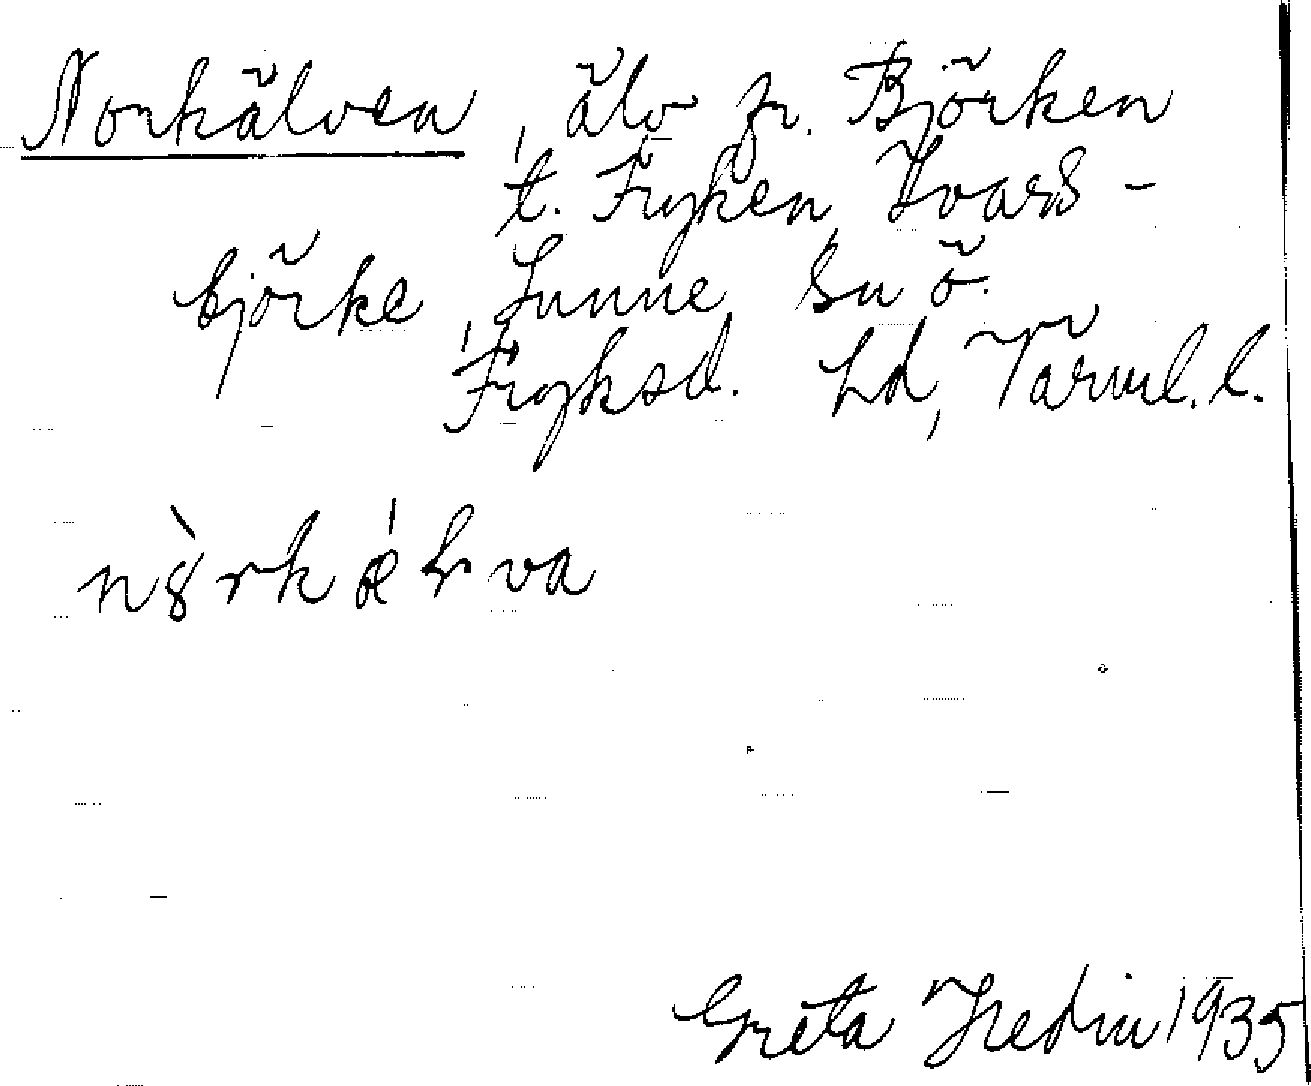 Norkälven, älv fr. Björken
t. Fryken, Ivars-
björke, Sunne sn o.
Fryksd. hd, Värml. l.
Greta Hedin 1935